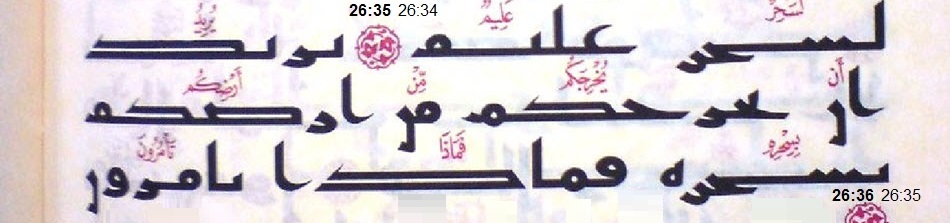 26:35 26:34
لَسَٰحِرٌ عَلِيمٌ يُرِيدُ
لسحر عليم يريد
أَن يُخْرِجَكُم مِّنْ أَرْضِكُم
ان يخرجكم من ارضكم
بِسِحْرِهِ فَمَاذَا تَأْمُرُونَ
بسحره فماذا تامرون
26:36 26:35